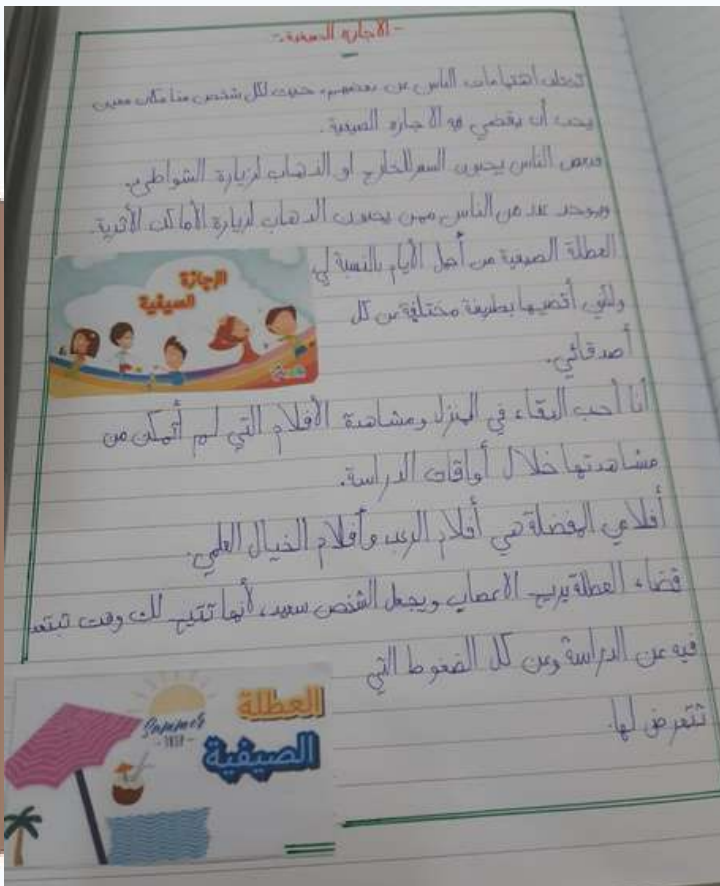 - الاجازه الصيفية -
تختلف اهتمامات الناس عن بعضهم، حيث لكل شخص منا مكان معين
يحب أن يقضي فيه الاجازه الصيفية.
فبعض الناس يحبون السفر للخارج او الذهاب لزيارة الشواطئ،
ويوجد عدد من الناس ممن يحبون الذهاب لزيارة الأماكن الأثرية.
العطلة الصيفية من أجمل الأيام بالنسبة لي
ولكني أقضيها بطريقة مختلفة عن كل
أصدقائي.
الإجازة
الصيفية
أنا أحب البقاء في المنزل ومشاهدة الأفلام التي لم أتمكن من
مشاهدتها خلال أوقات الدراسة.
أفلامي المفضلة هي أفلام الرعب وأفلام الخيال العلمي.
قضاء العطلة يريح الاعصاب ويجعل الشخص سعيد، لأنها تتيح لك وقت تبتعد
فيه عن الدراسة وعن كل الضغوط التي
تتعرض لها.
العطلة
الصيفية
Summer
TRIP